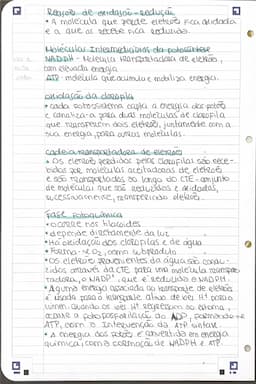 Reação de oxidação-redução
• A molécula que perde eletrões fica oxidada
e a que os recebe fica reduzida.
Moléculas Intermediárias da fotossíntese
NADPH - Molécula transportadora de eletrões,
com elevada energia
ATP - molécula que acumula e mobiliza energia.
Oxidação da clorofila
• cada fotossistema capta a energia dos fotões
e canaliza-a para duas moléculas de clorofila
que transferem dois eletrões, juntamente com a
sua energia, para outras moléculas.
Cadeia transportadora de eletrões
• Os eletrões perdidos pelas clorofilas são rece-
bidos por moléculas aceitadoras de eletrões
e são transportados ao longo do CTE - conjunto
de moléculas que são reduzidas e oxidadas,
sucessivamente, transferindo eletrões.
Fase fotoquímica
• ocorre nos tilacoides
• depende diretamente da luz
• Há oxidação das clorofilas e de água
• Forma-se O2, como subproduto
• Os eletrões provenientes da água são condu-
zidos através da CTE para uma molécula transpor-
tadora, o NADP+, que é reduzido a NADPH
• Alguma energia associada ao transporte de eletrões
é usada para o transporte ativo de iões H+ para o
lúmen. Quando os iões H+ regressam ao estroma,
ocorre a fotofosforilação do ADP, formando-se
ATP, com a intervenção da ATP sintase.
• A energia dos fotões é convertida em energia
química, com a formação de NADPH e ATP.